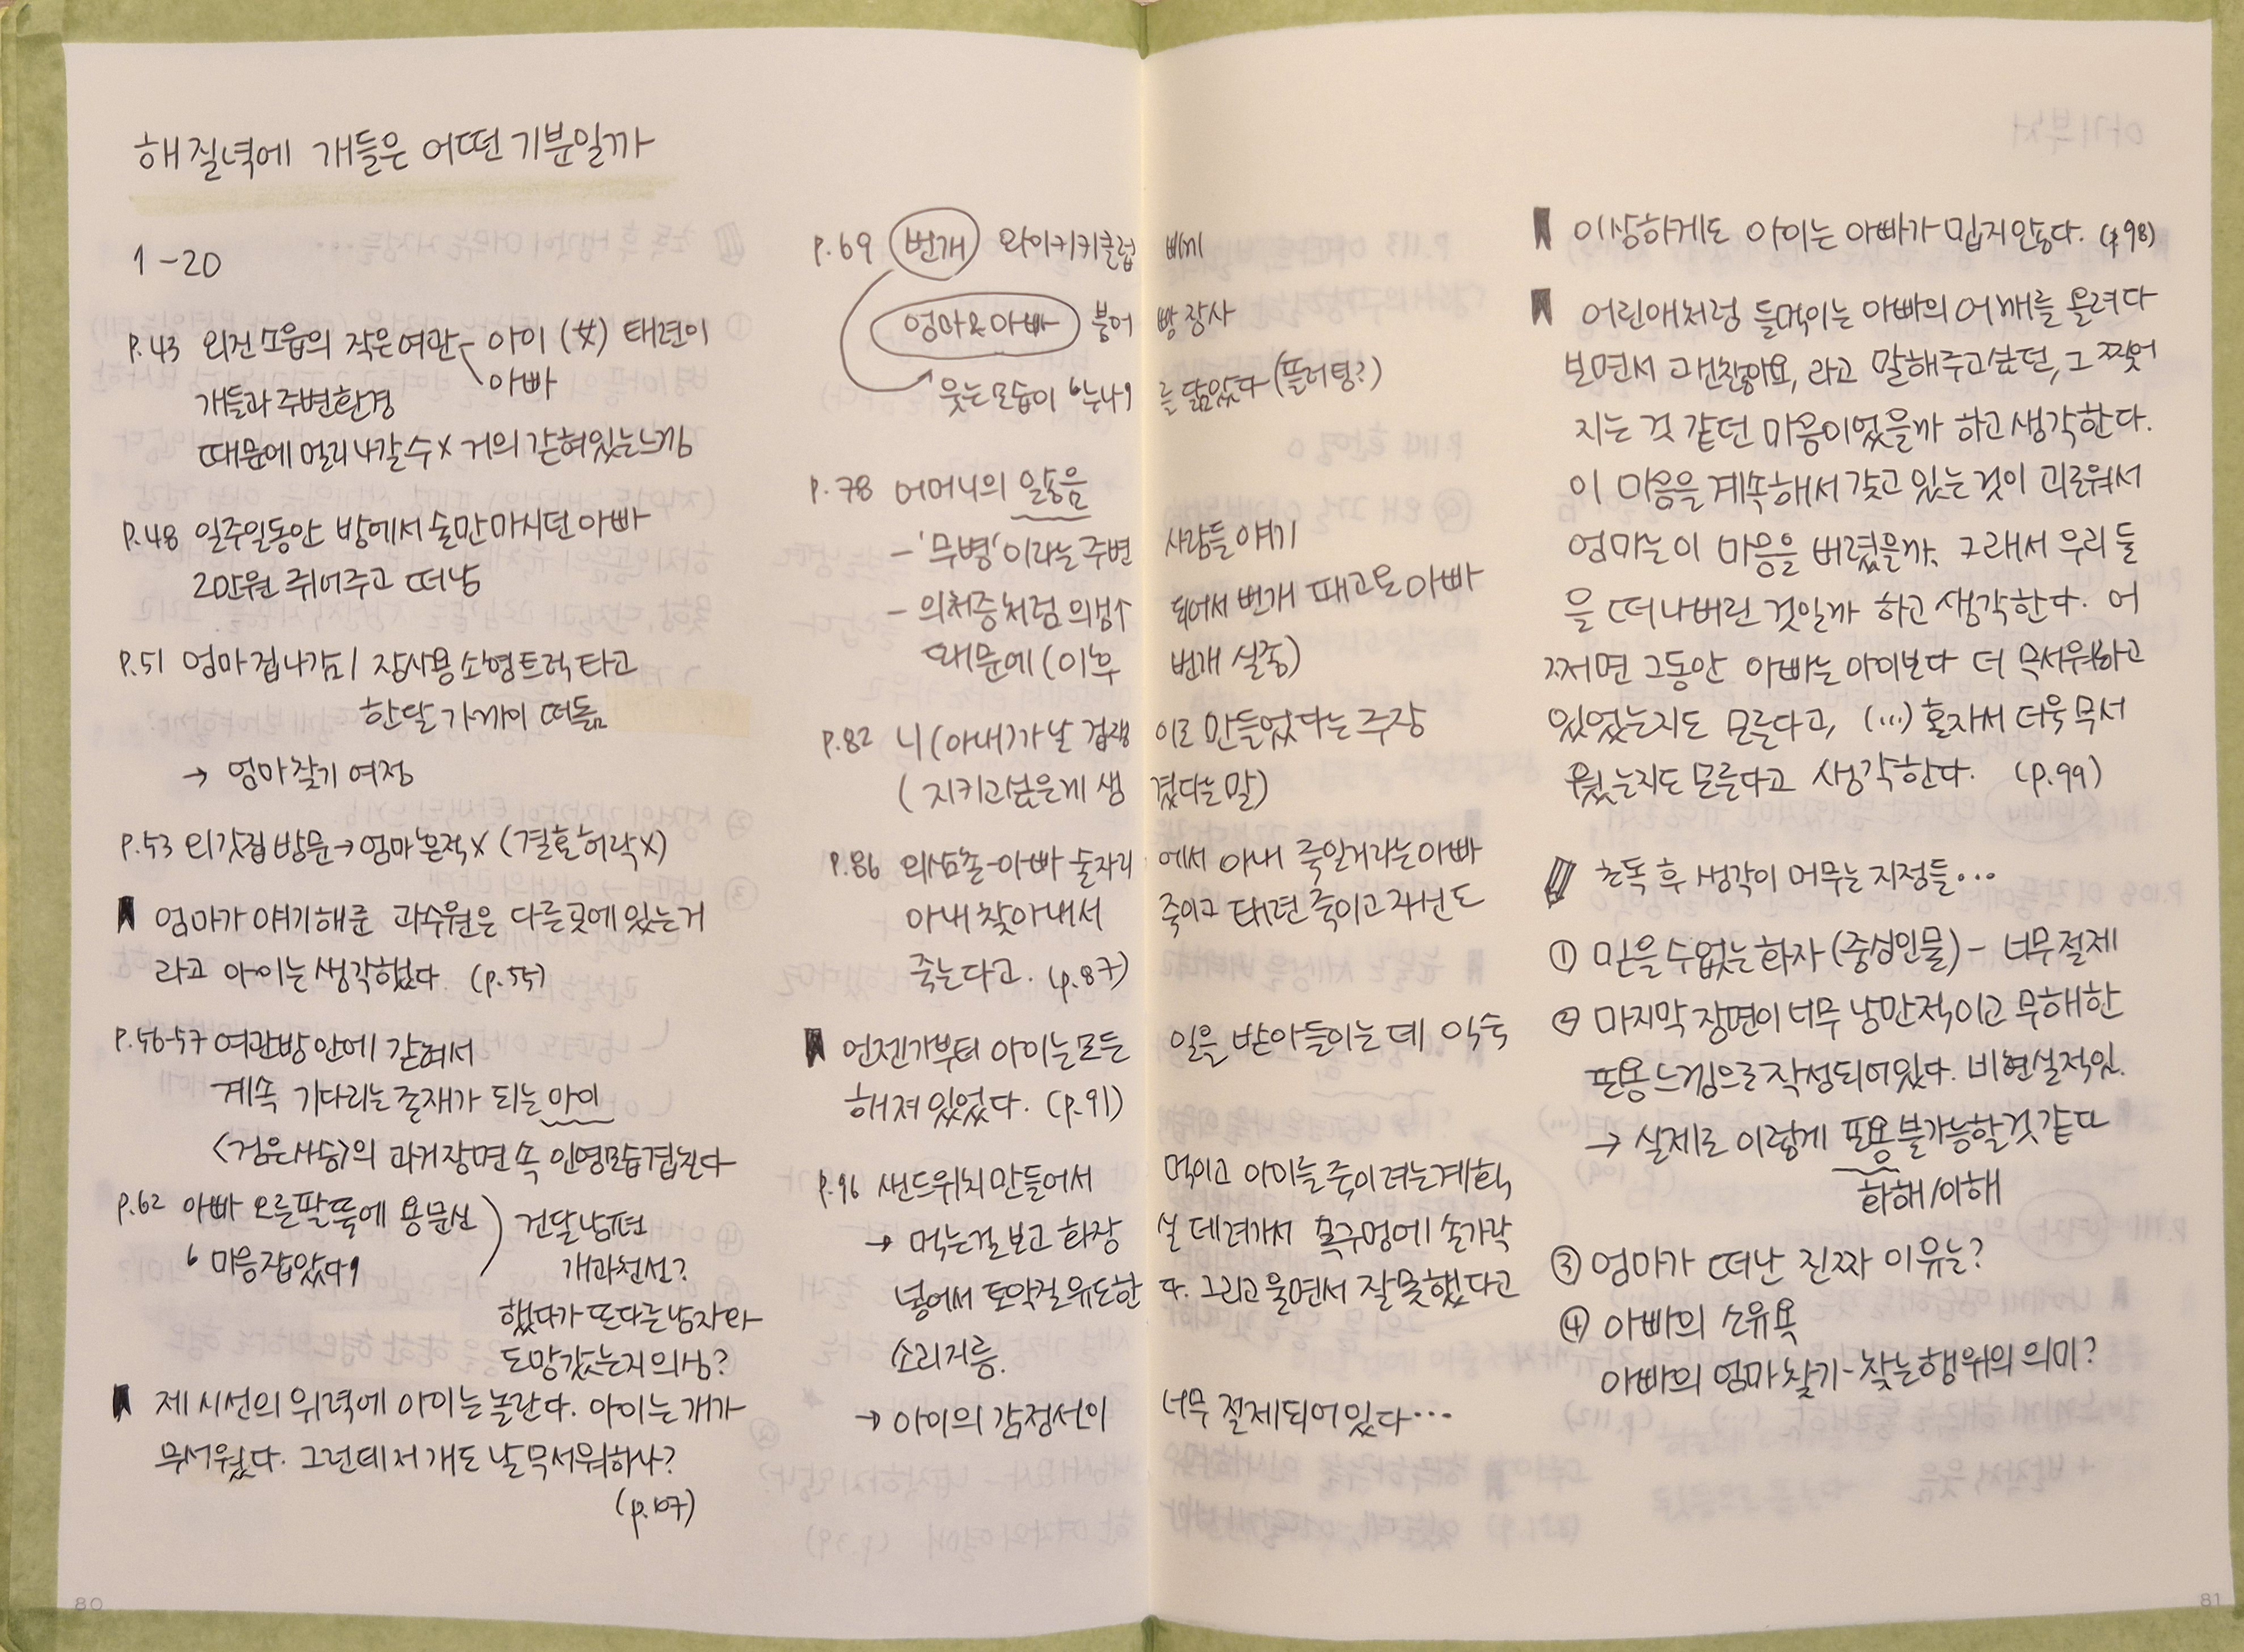 해질녘에 개들은 어떤 기분일까
1-20
p.43 외진 모읍의 작은 여관 - 아이 (女) 태련이
아빠
개들과 주변환경
때문에 멀리 나갈 수 x 거의 갇혀있는 느낌
p.48 일주일동안 방에서 술만 마시던 아빠
2만원 쥐어주고 떠남
p.51 엄마 집나감 / 장사용 소형트럭 타고
한달 가까이 떠돎
→ 엄마찾기 여정
p.53 외갓집 방문 → 엄마 흔적 x (결혼허락 x)
엄마가 얘기해준 과수원은 다른 곳에 있는 거
라고 아이는 생각했다. (p.55)
p.56-57 여관방 안에 갇혀서
계속 기다리는 존재가 되는 아이
<검은사슴>의 과거장면 속 인영모습 겹친다
p.62 아빠 오른팔뚝에 용문신
'마음잡았다'
건달남편
개과천선?
했다가 또다른 남자와
도망갔는지 의심?
제 시선의 위력에 아이는 놀란다. 아이는 개가
무서웠다. 그런데 저 개도 날 무서워하나?
(p.67)
p.69 번개 와이키키클럽 삐끼
엄마&아빠 붕어빵 장사
웃는 모습이 '누나'를 닮았다 (플러팅?)
p.78 어머니의 일송음
- '무병'이라는 주변 사람들 얘기
- 의처증처럼 의심↑ 되어서 번개 때고온 아빠
때문에 (이후 번개 실종)
p.82 니(아내)가 날 겁쟁이로 만들었다는 주장
(지키고싶은게 생겼다는 말)
p.86 외삼촌-아빠 술자리에서 아내 죽일거라는 아빠
아내 찾아내서 죽이고 태련 죽이고 자신도
죽는다고. (p.87)
언젠가부터 아이는 모든 일을 받아들이는 데 익숙
해져 있었다. (p.91)
p.96 샌드위치 만들어서 먹이고 아이를 죽이려는 계획
→ 먹는걸 보고 화장실 데려가서 목구멍에 손가락
넣어서 토악질 유도한다. 그리고 울면서 잘못했다고
소리지름.
→ 아이의 감정선이 너무 절제되어 있다...
이상하게도 아이는 아빠가 밉지 않다. (p.98)
어린애처럼 들먹이는 아빠의 어깨를 올려다
보면서 괜찮아요, 라고 말해주고 싶던, 그 찢어
지는 것 같던 마음이었을까 하고 생각한다.
이 마음을 계속해서 갖고 있는 것이 괴로워서
엄마는 이 마음을 버렸을까, 그래서 우리 들
을 떠나버린 것일까 하고 생각한다. 어
쩌면 그동안 아빠는 아이보다 더 무서워하고
있었는지도 모른다고, (...) 혼자서 더욱 무서
웠는지도 모른다고 생각한다. (p.99)
초독 후 생각이 머무는 지점들...
① 믿을 수 없는 화자 (중심인물) - 너무 절제
② 마지막 장면이 너무 낭만적이고 무해한
포용 느낌으로 작성되어 있다. 비현실적임.
→ 실제로 이렇게 포용 불가능할 것 같다
화해/이해
③ 엄마가 떠난 진짜 이유는?
④ 아빠의 소유욕
아빠의 엄마 찾기 - 찾는 행위의 의미?
80
81